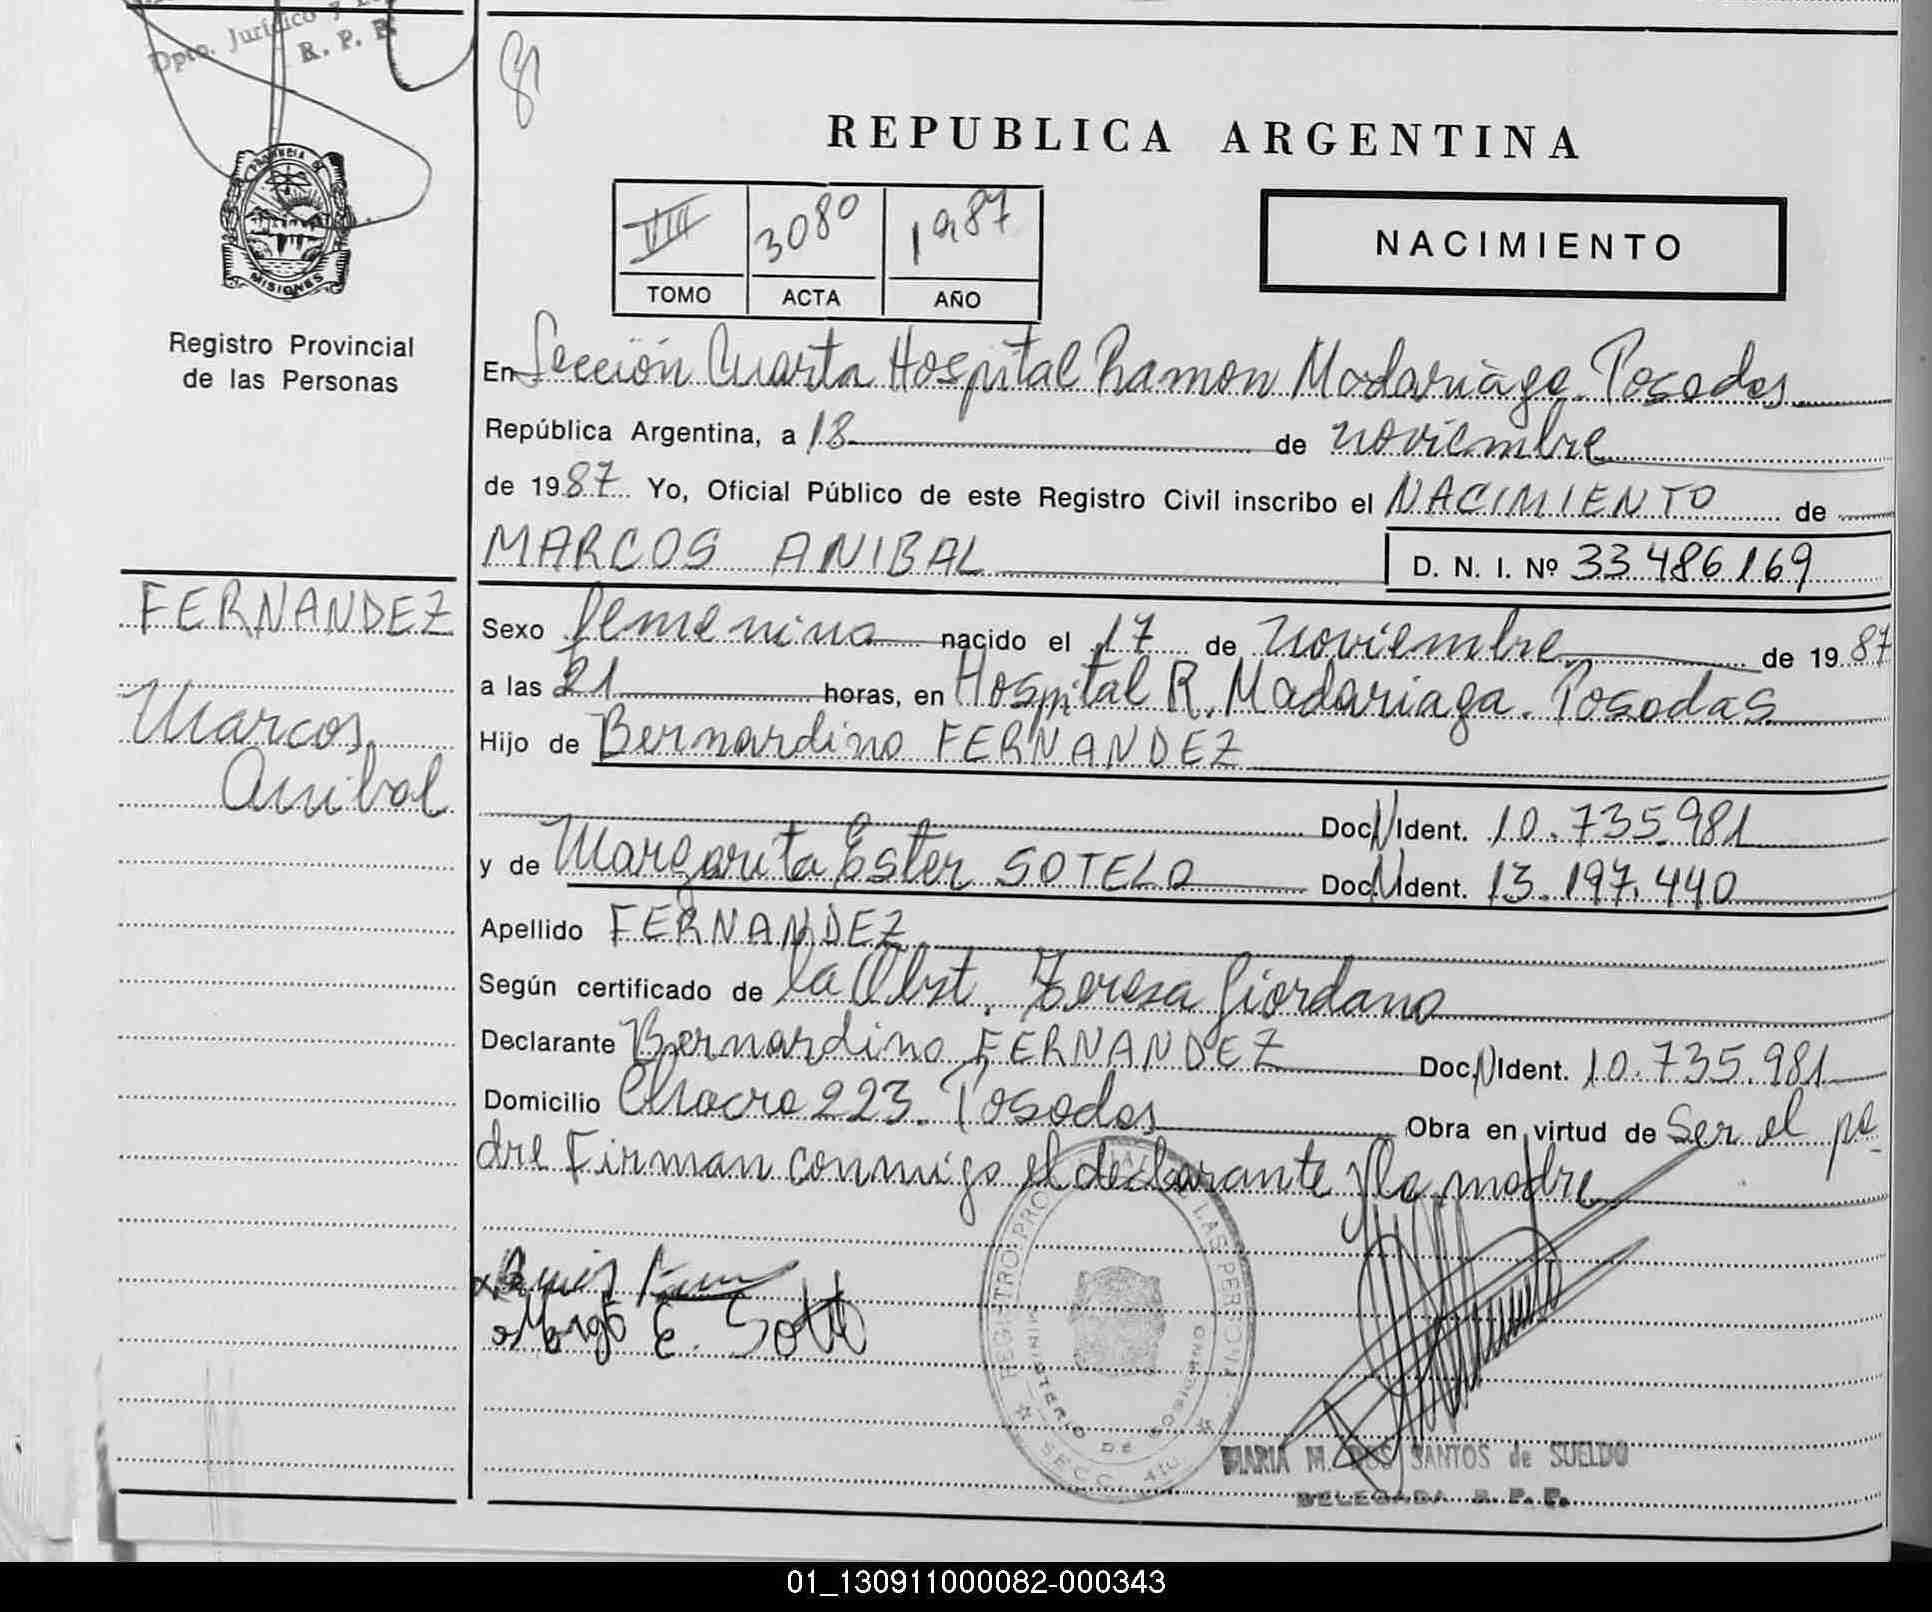 Dpto. Jurídico y
R. P. P.
PROVINCIA DE
MISIONES
Registro Provincial
de las Personas
FERNANDEZ
Marcos
Anibal
REPUBLICA ARGENTINA
VIII 3080 1987
TOMO ACTA AÑO
NACIMIENTO
En Sección Cuarta Hospital Ramon Madariaga. Posadas
República Argentina, a 18 de noviembre
de 1987 Yo, Oficial Público de este Registro Civil inscribo el NACIMIENTO de
MARCOS ANIBAL D. N. I. Nº 33486169
Sexo femenino nacido el 17 de noviembre de 1987
a las 21 horas, en Hospital R. Madariaga. Posadas
Hijo de Bernardino FERNANDEZ
Doc N Ident. 10.735.981
y de Margarita Ester SOTELO Doc N Ident. 13.197.440
Apellido FERNANDEZ
Según certificado de la Obst. Teresa Giordano
Declarante Bernardino FERNANDEZ Doc N Ident. 10.735.981
Domicilio Chacra 223. Posadas Obra en virtud de Ser el pa-
dre Firman conmigo el declarante y la madre
E. Soto
REGISTRO PROVINCIAL DE LAS PERSONAS
MINISTERIO DE GOBIERNO
SECC. 4ta.
MARIA M. DOS SANTOS de SUELDO
DELEGADA R. P. P.
01_130911000082-000343